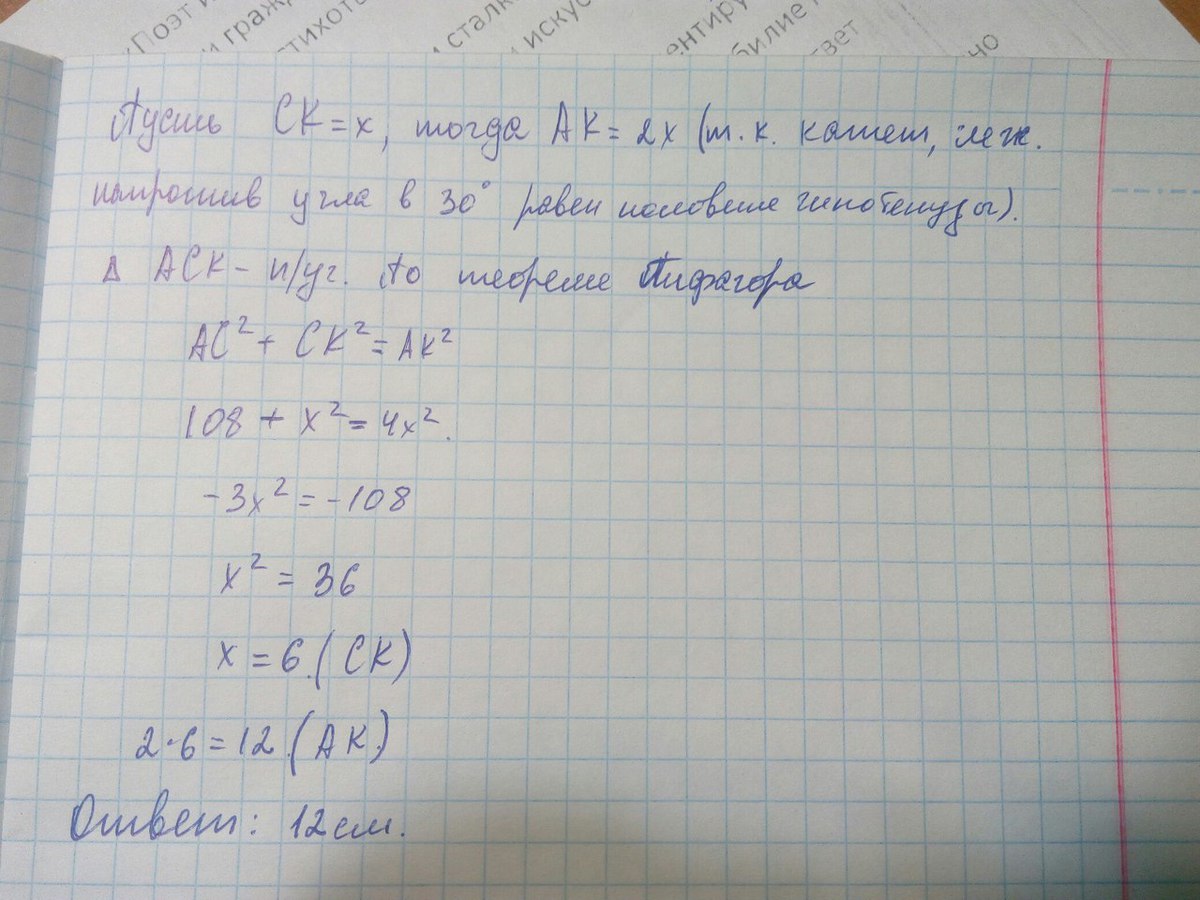 Поэт и
и гражд
стихотв
и сталк
и искус
ентиру
билие
ответ
но
Пусть CK = x, тогда AK = 2x (т.к. катет, леж.
напротив угла в 30° равен половине гипотенузы).
Δ ACK - п/уг. По теореме Пифагора
AC² + CK² = AK²
108 + x² = 4x².
-3x² = -108
x² = 36
x = 6.(CK)
2·6 = 12.(AK)
Ответ: 12 см.